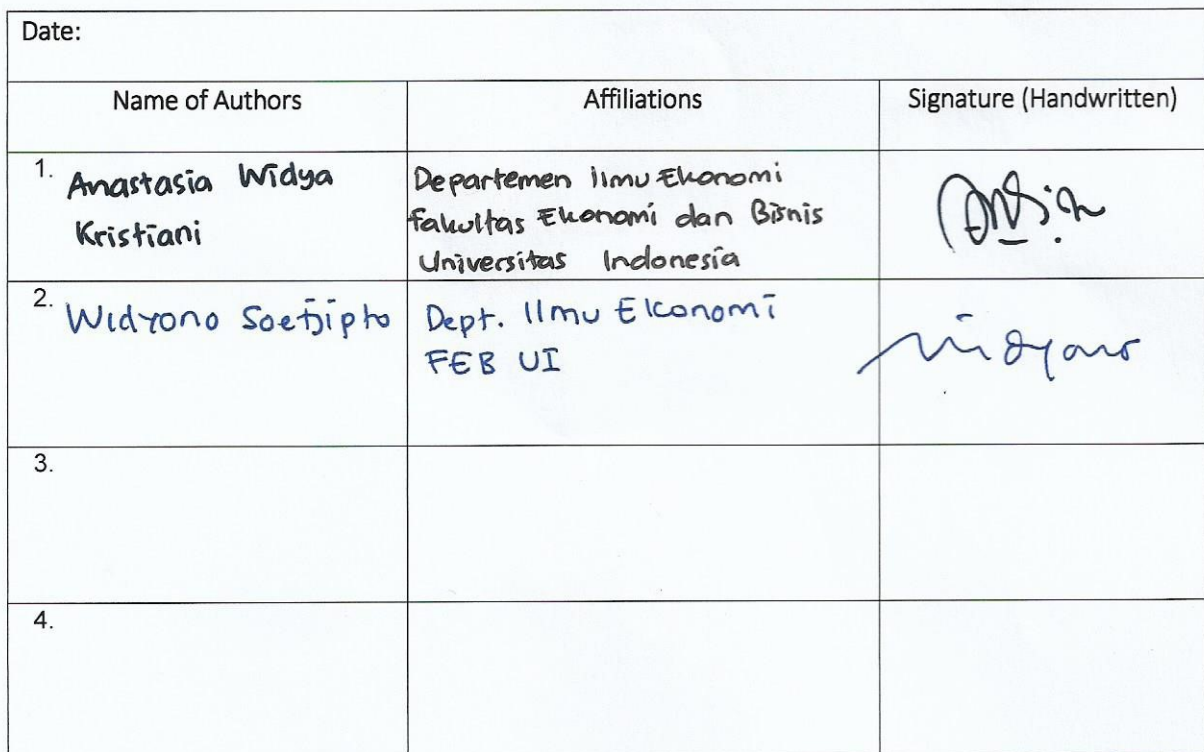 Date:
Name of Authors Affiliations Signature (Handwritten)
1. Anastasia Widya
Kristiani
Departemen Ilmu Ekonomi
Fakultas Ekonomi dan Bisnis
Universitas Indonesia
2. Widyono Soetjipto
Dept. Ilmu Ekonomi
FEB UI
widyono
3.
4.